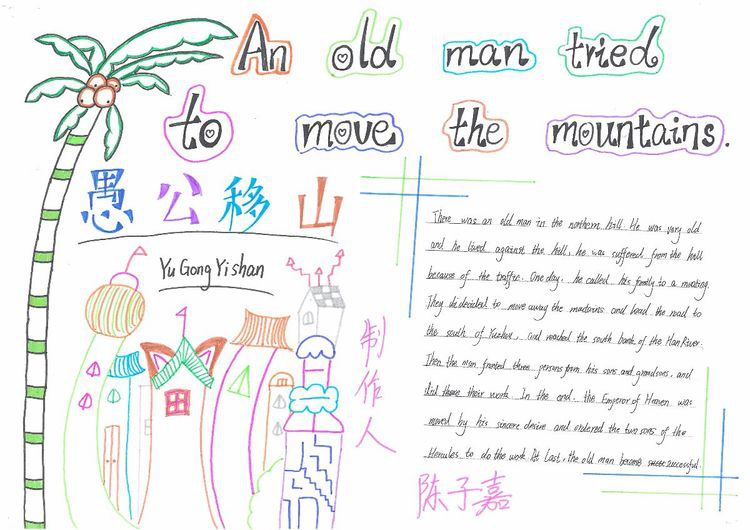 An old man tried
to move the mountains.
愚公移山
Yu Gong Yi shan
There was an old man in the northern hill. He was very old
and he lived against the hill, he was suffered from the hill
because of the traffic. One day, he called his family to a meeting.
They dicided to move away the and the road to
the south of Yuzhou, and reached the south bank of the Han River.
Then the man three persons from his sons and grandsons, and
did their work. In the end, the Emperor of Heaven was
moved by his sincere desire and ordered the two sons of the
Hercules to do the work. At last, the old man successful.
制作人
陈子嘉